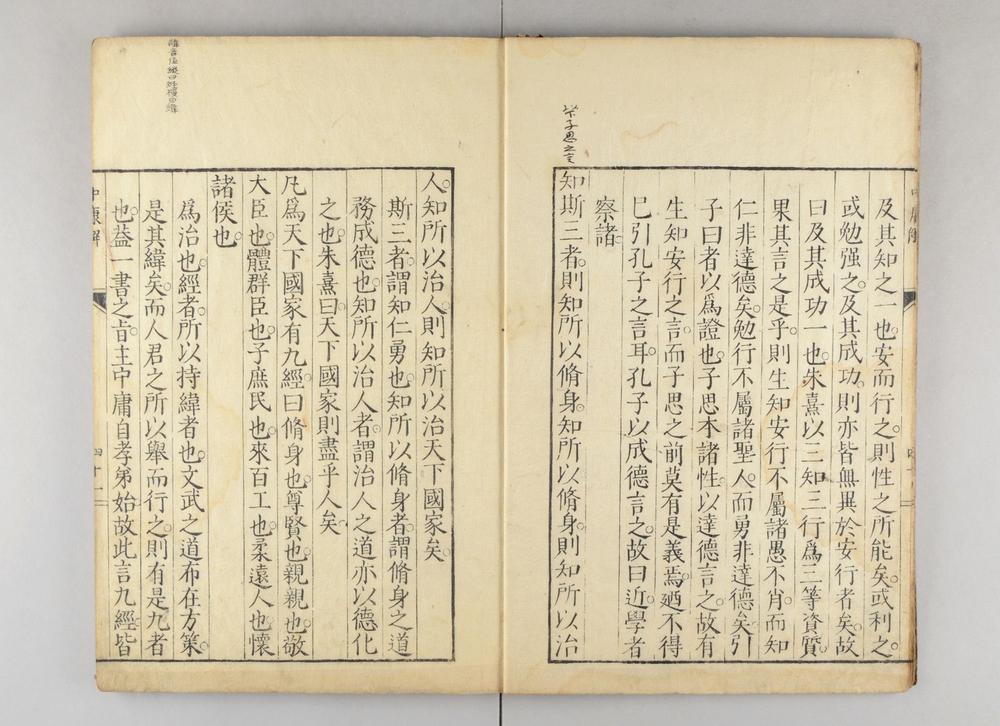 及其知之一也安而行之則性之所能矣或利之
或勉强之及其成功則亦皆無異於安行者矣故
曰及其成功一也朱熹以三知三行爲三等資質
果其言之是乎則生知安行不屬諸愚不肖而知
仁非達德矣勉行不屬諸聖人而勇非達德矣引
子曰者以爲證也子思本諸性以達德言之故有
生知安行之言而子思之前莫有是義焉廼不得
巳引孔子之言耳孔子以成德言之故曰近學者
察諸
知斯三者則知所以脩身知所以脩身則知所以治
人知所以治人則知所以治天下國家矣
斯三者謂知仁勇也知所以脩身者謂脩身之道
務成德也知所以治人者謂治人之道亦以德化
之也朱熹曰天下國家則盡乎人矣
凡爲天下國家有九經曰脩身也尊賢也親親也敬
大臣也體群臣也子庶民也來百工也柔遠人也懷
諸侯也
爲治也經者所以持緯者也文武之道布在方策
是其緯矣而人君之所以舉而行之則有是九者
也葢一書之旨主中庸自孝弟始故此言九經皆
中庸解
四十一